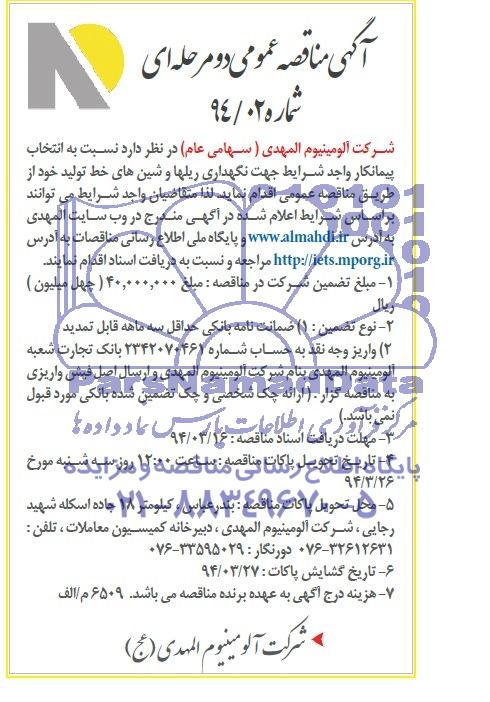 آگهی مناقصه عمومی دو مرحله ای
شماره ۹۴/۰۲
شرکت آلومینیوم المهدی ( سهامی عام) در نظر دارد نسبت به انتخاب
پیمانکار واجد شرایط جهت نگهداری ریلها و شین های خط تولید خود از
طریق مناقصه عمومی اقدام نماید. لذا متقاضیان واجد شرایط می توانند
براساس شرایط اعلام شده در آگهی مندرج در وب سایت المهدی
به آدرس www.almahdi.ir و پایگاه ملی اطلاع رسانی مناقصات به آدرس
http://iets.mporg.ir مراجعه و نسبت به دریافت اسناد اقدام نمایند.
۱- مبلغ تضمین شرکت در مناقصه : مبلغ ۴۰,۰۰۰,۰۰۰ ( چهل میلیون )
ریال
۲- نوع تضمین : ۱) ضمانت نامه بانکی حداقل سه ماهه قابل تمدید
۲) واریز وجه نقد به حساب شماره ۲۳۴۲۰۷۰۴۶۱ بانک تجارت شعبه
آلومینیوم المهدی بنام شرکت آلومینیوم المهدی و ارسال اصل فیش واریزی
به مناقصه گزار . ( ارائه چک شخصی و چک تضمین شده بانکی مورد قبول
نمی باشد.)
۳- مهلت دریافت اسناد مناقصه : ۹۴/۰۳/۱۶
۴- تاریخ تحویل پاکات مناقصه : ساعت ۱۲:۰۰ روز سه شنبه مورخ
۹۴/۳/۲۶
۵- محل تحویل پاکات مناقصه : بندرعباس ، کیلومتر ۱۸ جاده اسکله شهید
رجایی ، شرکت آلومینیوم المهدی ، دبیرخانه کمیسیون معاملات ، تلفن :
۰۷۶-۳۲۶۱۲۶۳۱ دورنگار : ۰۷۶-۳۳۵۹۵۰۲۹
۶- تاریخ گشایش پاکات : ۹۴/۰۳/۲۷
۷- هزینه درج آگهی به عهده برنده مناقصه می باشد. ۶۵۰۹ م/الف
شرکت آلومینیوم المهدی (عج)
ParsNamadData
مرکز فرآوری اطلاعات پارس نماد داده ها
پایگاه اطلاع رسانی مناقصه و مزایده
۰۲۱-۸۸۳۴۹۶۷۰-۵